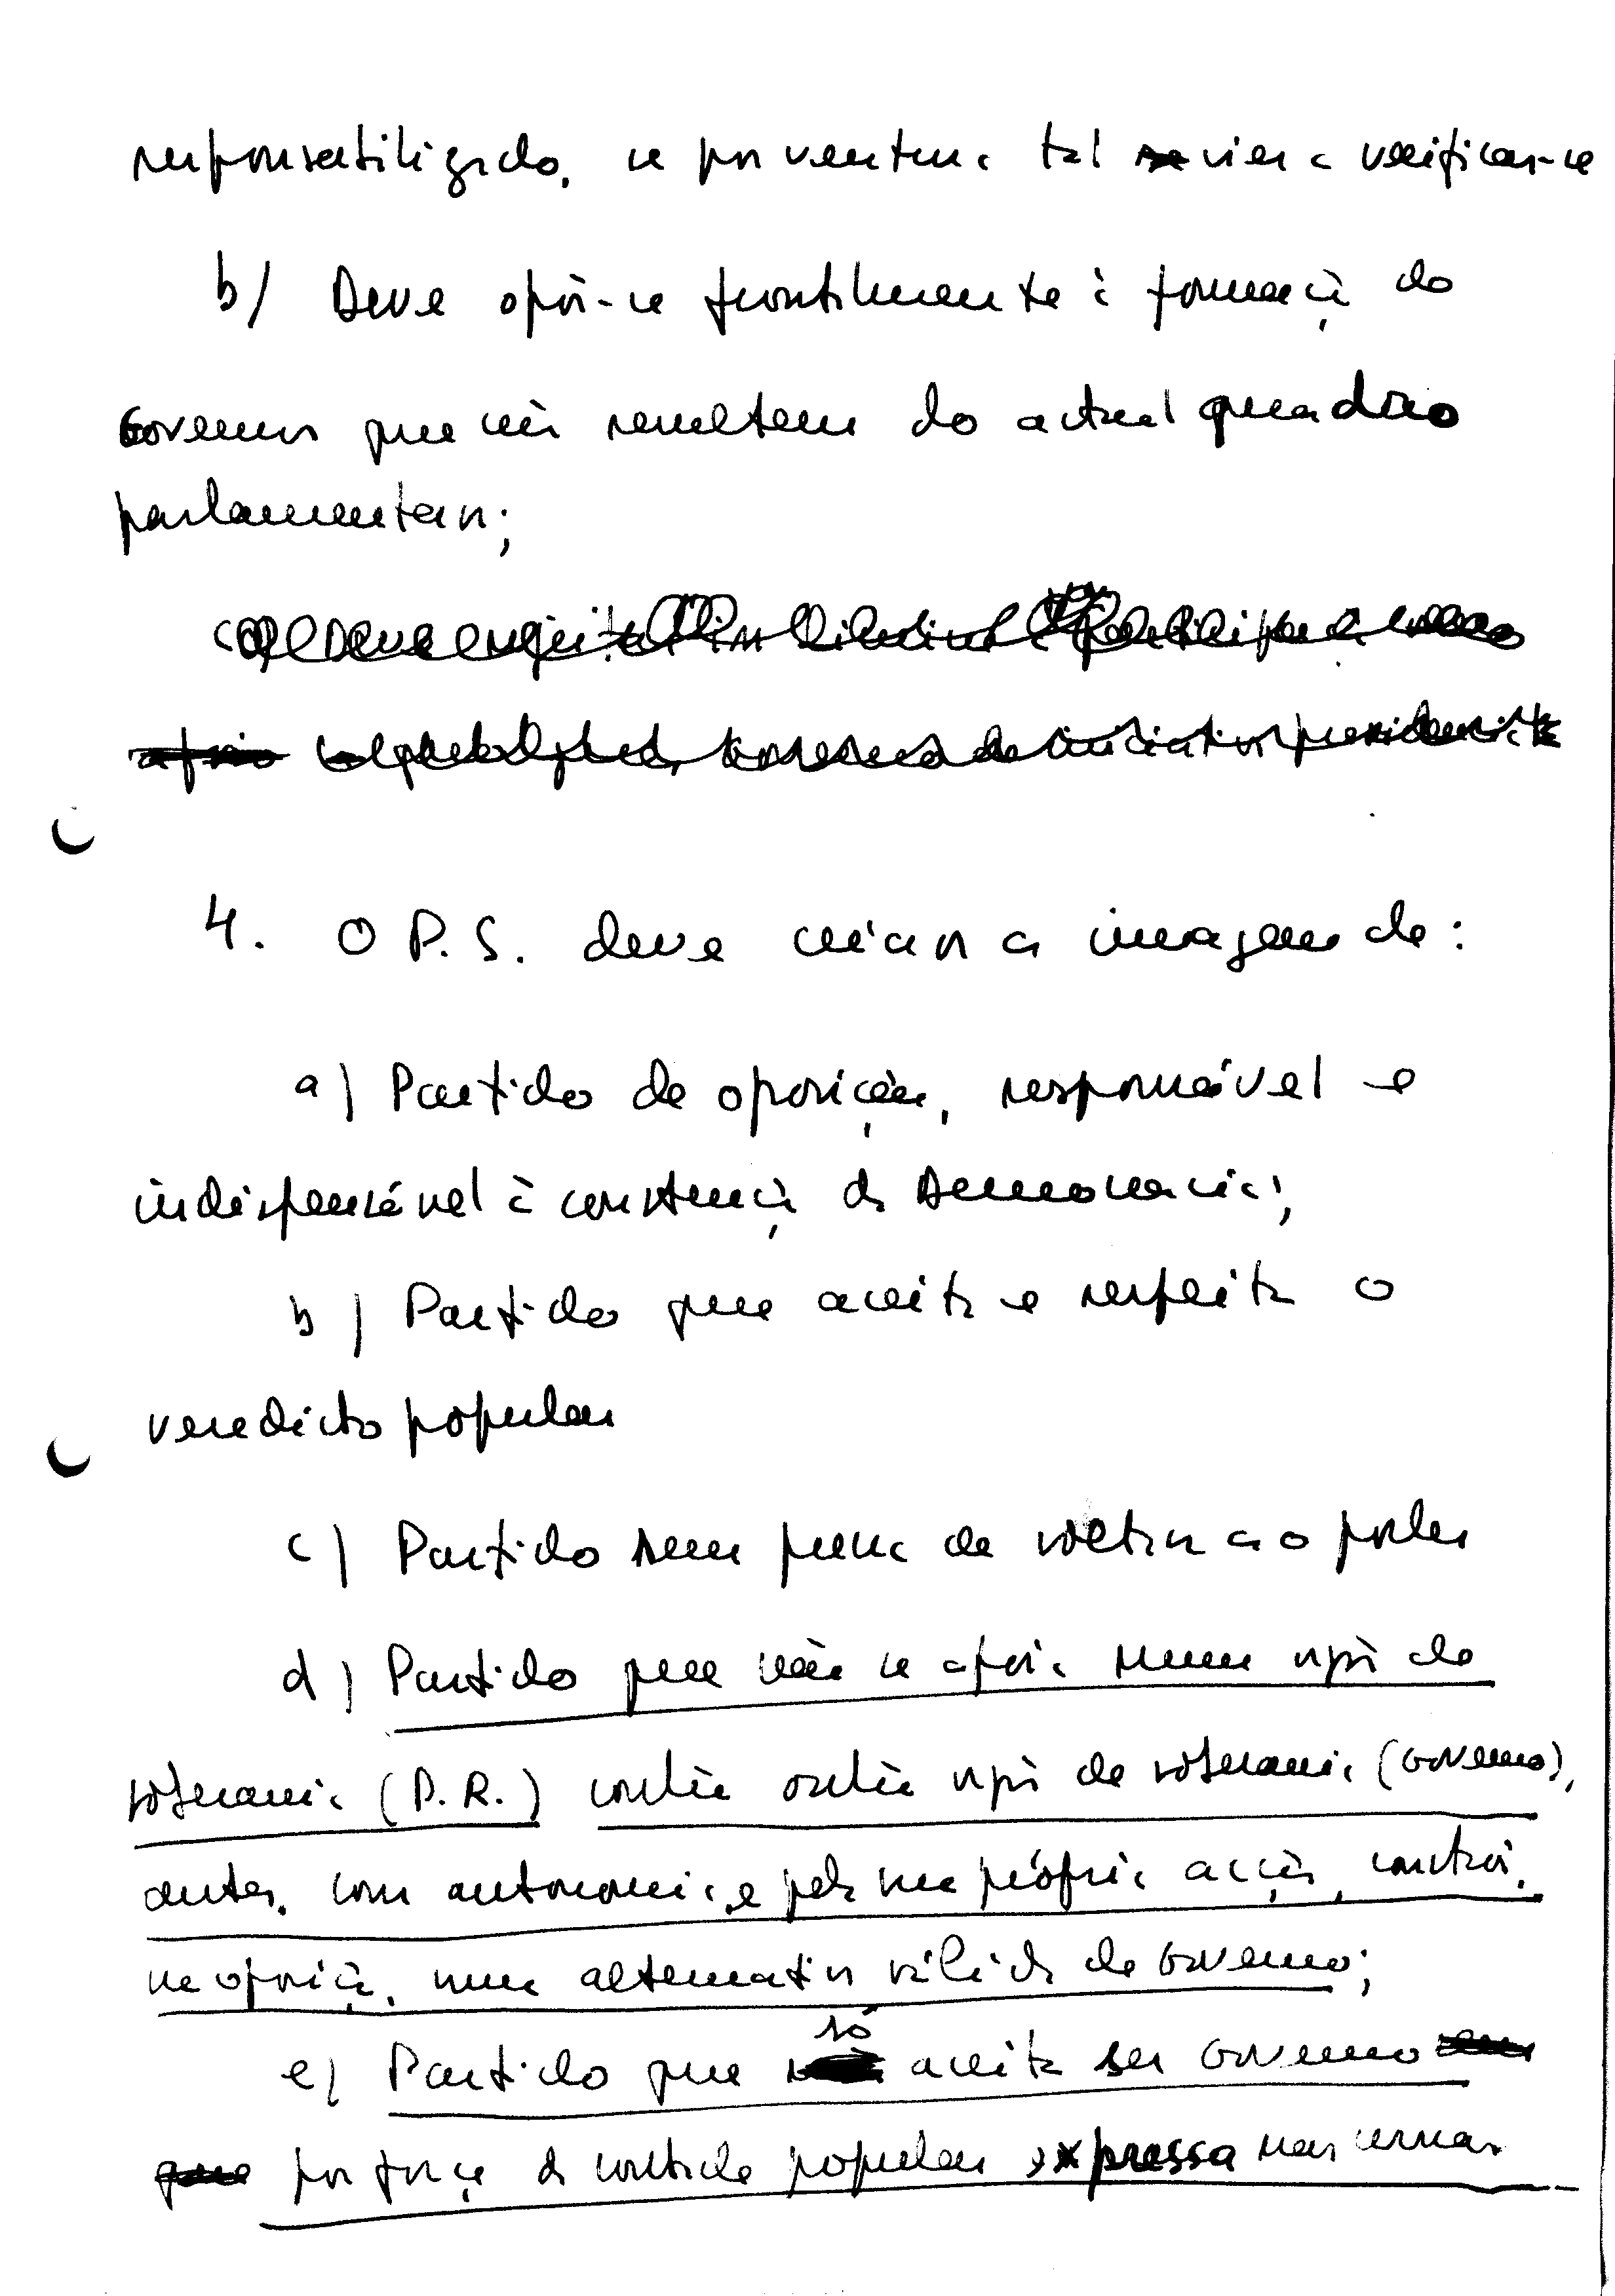 responsabilizado, se porventura tal se vier a verificar-se
b) Deve opôr-se frontalmente à formação de
Governos que não resultem do actual quadro
parlamentar;
c) Deve
apoio de iniciativa presidencial
4. O P.S. deve criar a imagem de:
a) Partido de oposição, responsável e
indispensável à construção da Democracia;
b) Partido que aceita e respeita o
veredicto popular
c) Partido sem pressa de voltar ao poder
d) Partido que não se apoia num orgão de
soberania (P.R.) contra outro orgão de soberania (Governo),
antes, com autonomia e pela sua própria acção, constrói,
na oposição, uma alternativa válida de Governo;
e) Partido que só aceita ser Governo em
que por força da vontade popular expressa nas urnas